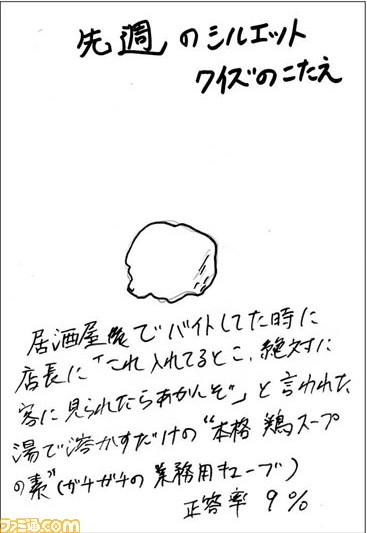 先週のシルエット
クイズのこたえ
居酒屋でバイトしてた時に
店長に「これ入れてるとこ、絶対に
客に見られたらあかんぞ」と言われた、
湯で溶かすだけの“本格 鶏スープ
の素”(ガチガチの業務用キューブ)
正答率 9%
ファミ通.com